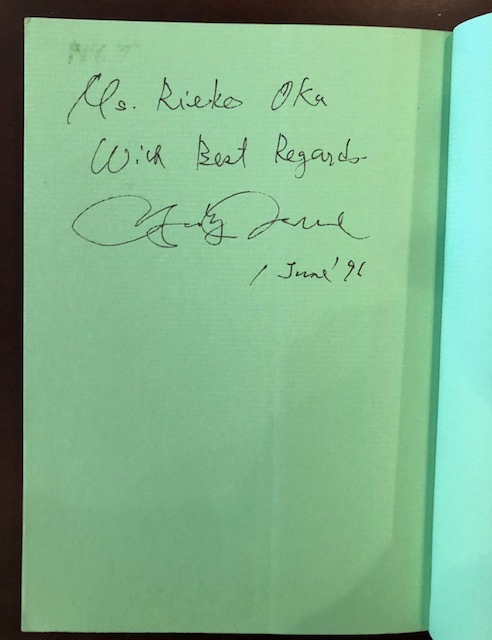 Ms. Rieko Oka
With Best Regards
1 June '91